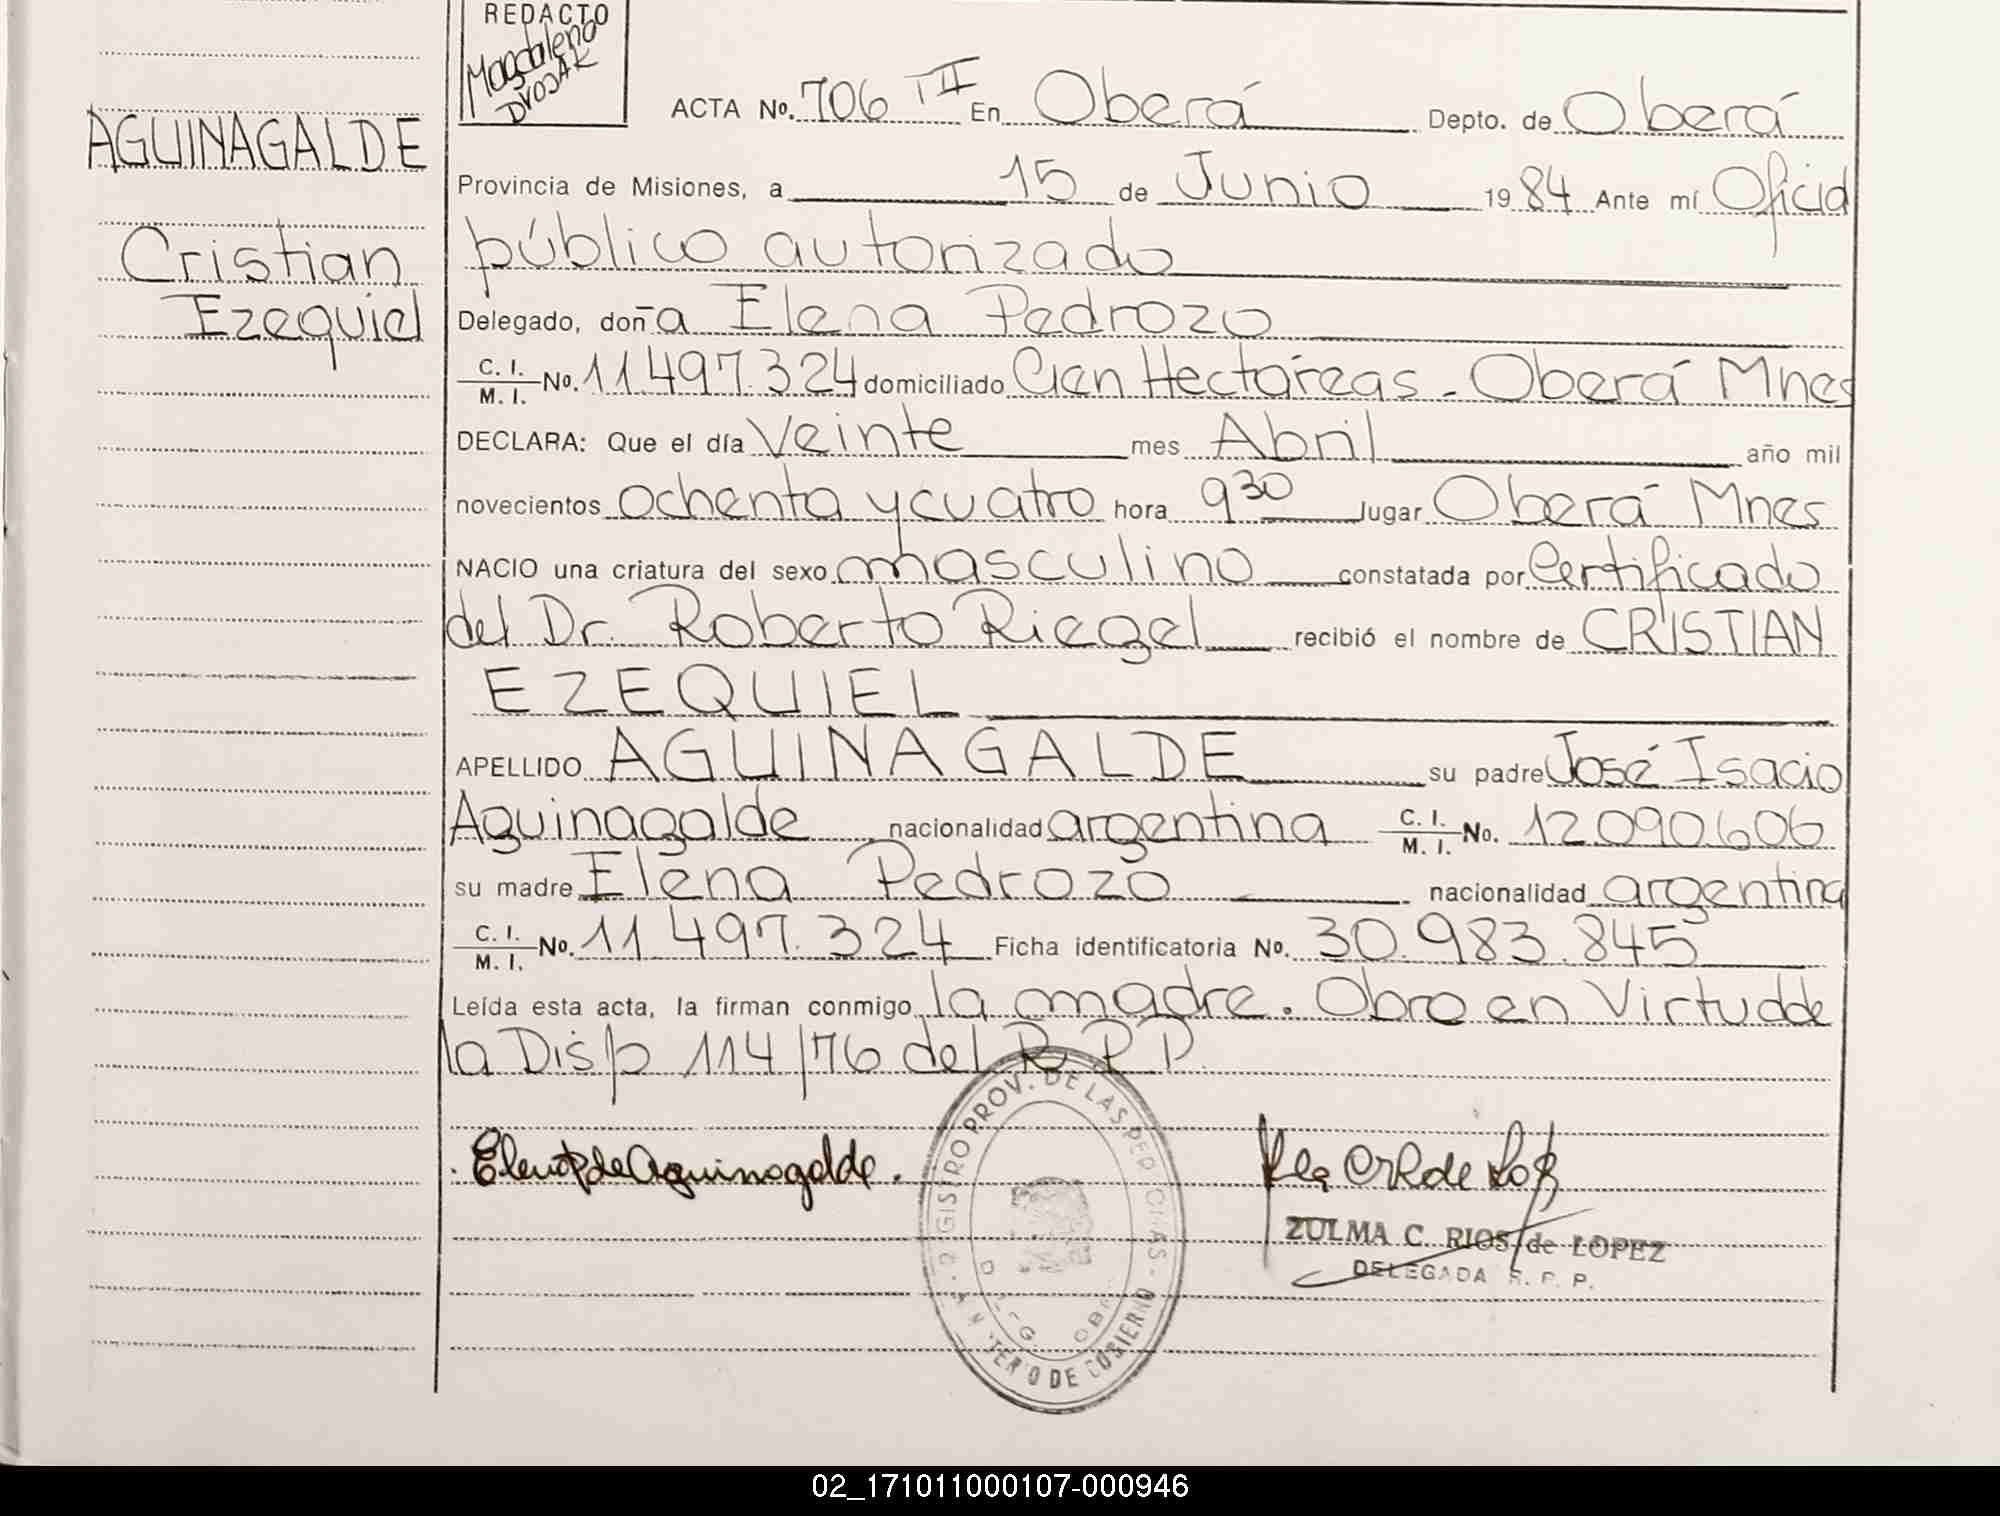 REDACTO
Magdalena
DVOJAK
AGUINAGALDE
Cristian
Ezequiel
ACTA No. 706 T II En Oberá Depto. de Oberá
Provincia de Misiones, a 15 de Junio 1984 Ante mí Oficial
público autorizado
Delegado, doña Elena Pedrozo
C. I. / M. I. No. 11.497.324 domiciliado Cien Hectáreas - Oberá Mnes
DECLARA: Que el día Veinte mes Abril año mil
novecientos ochenta y cuatro hora 9 30 lugar Oberá Mnes
NACIO una criatura del sexo masculino constatada por Certificado
del Dr. Roberto Riegel recibió el nombre de CRISTIAN
EZEQUIEL
APELLIDO AGUINAGALDE su padre José Isacio
Aguinagalde nacionalidad argentina C. I. / M. I. No. 12.090.606
su madre Elena Pedrozo nacionalidad argentina
C. I. / M. I. No. 11.497.324 Ficha identificatoria No. 30.983.845
Leída esta acta, la firman conmigo la madre. Obro en Virtud de
la Disp 114/76 del R.P.P.
Elena P de Aguinagalde.
REGISTRO PROV. DE LAS PERSONAS - MINISTERIO DE GOBIERNO
ZULMA C. RIOS de LOPEZ
DELEGADA R. P. P.
02_171011000107-000946